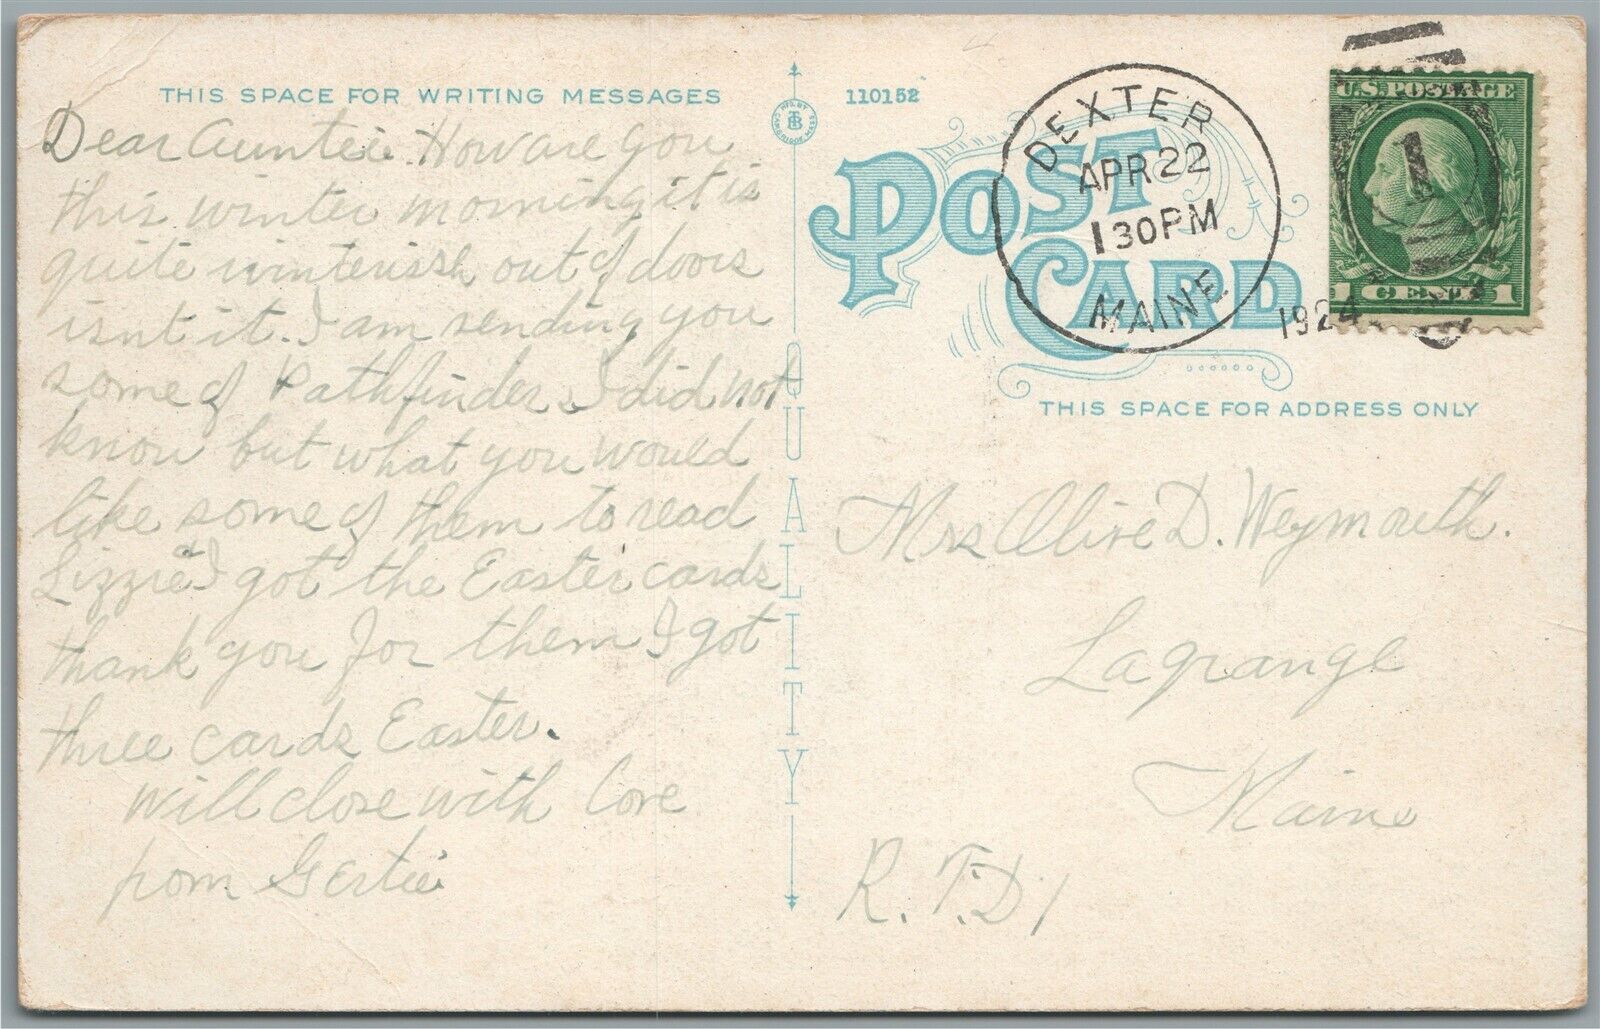 THIS SPACE FOR WRITING MESSAGES
Dear Auntie. How are you
this winter morning it is
quite winterish out of doors
isnt it. I am sending you
some of Pathfinders I did not
know but what you would
like some of them to read
Lizzie I got the Easter cards
thank you for them I got
three cards Easter.
will close with love
from Gertie
QUALITY
110152
POST CARD
DEXTER
APR 22
1 30 PM
MAINE
1924
U.S. POSTAGE
1
1 CENT 1
THIS SPACE FOR ADDRESS ONLY
Mrs Olive D. Weymouth.
Lagrange
Maine
R.F.D 1